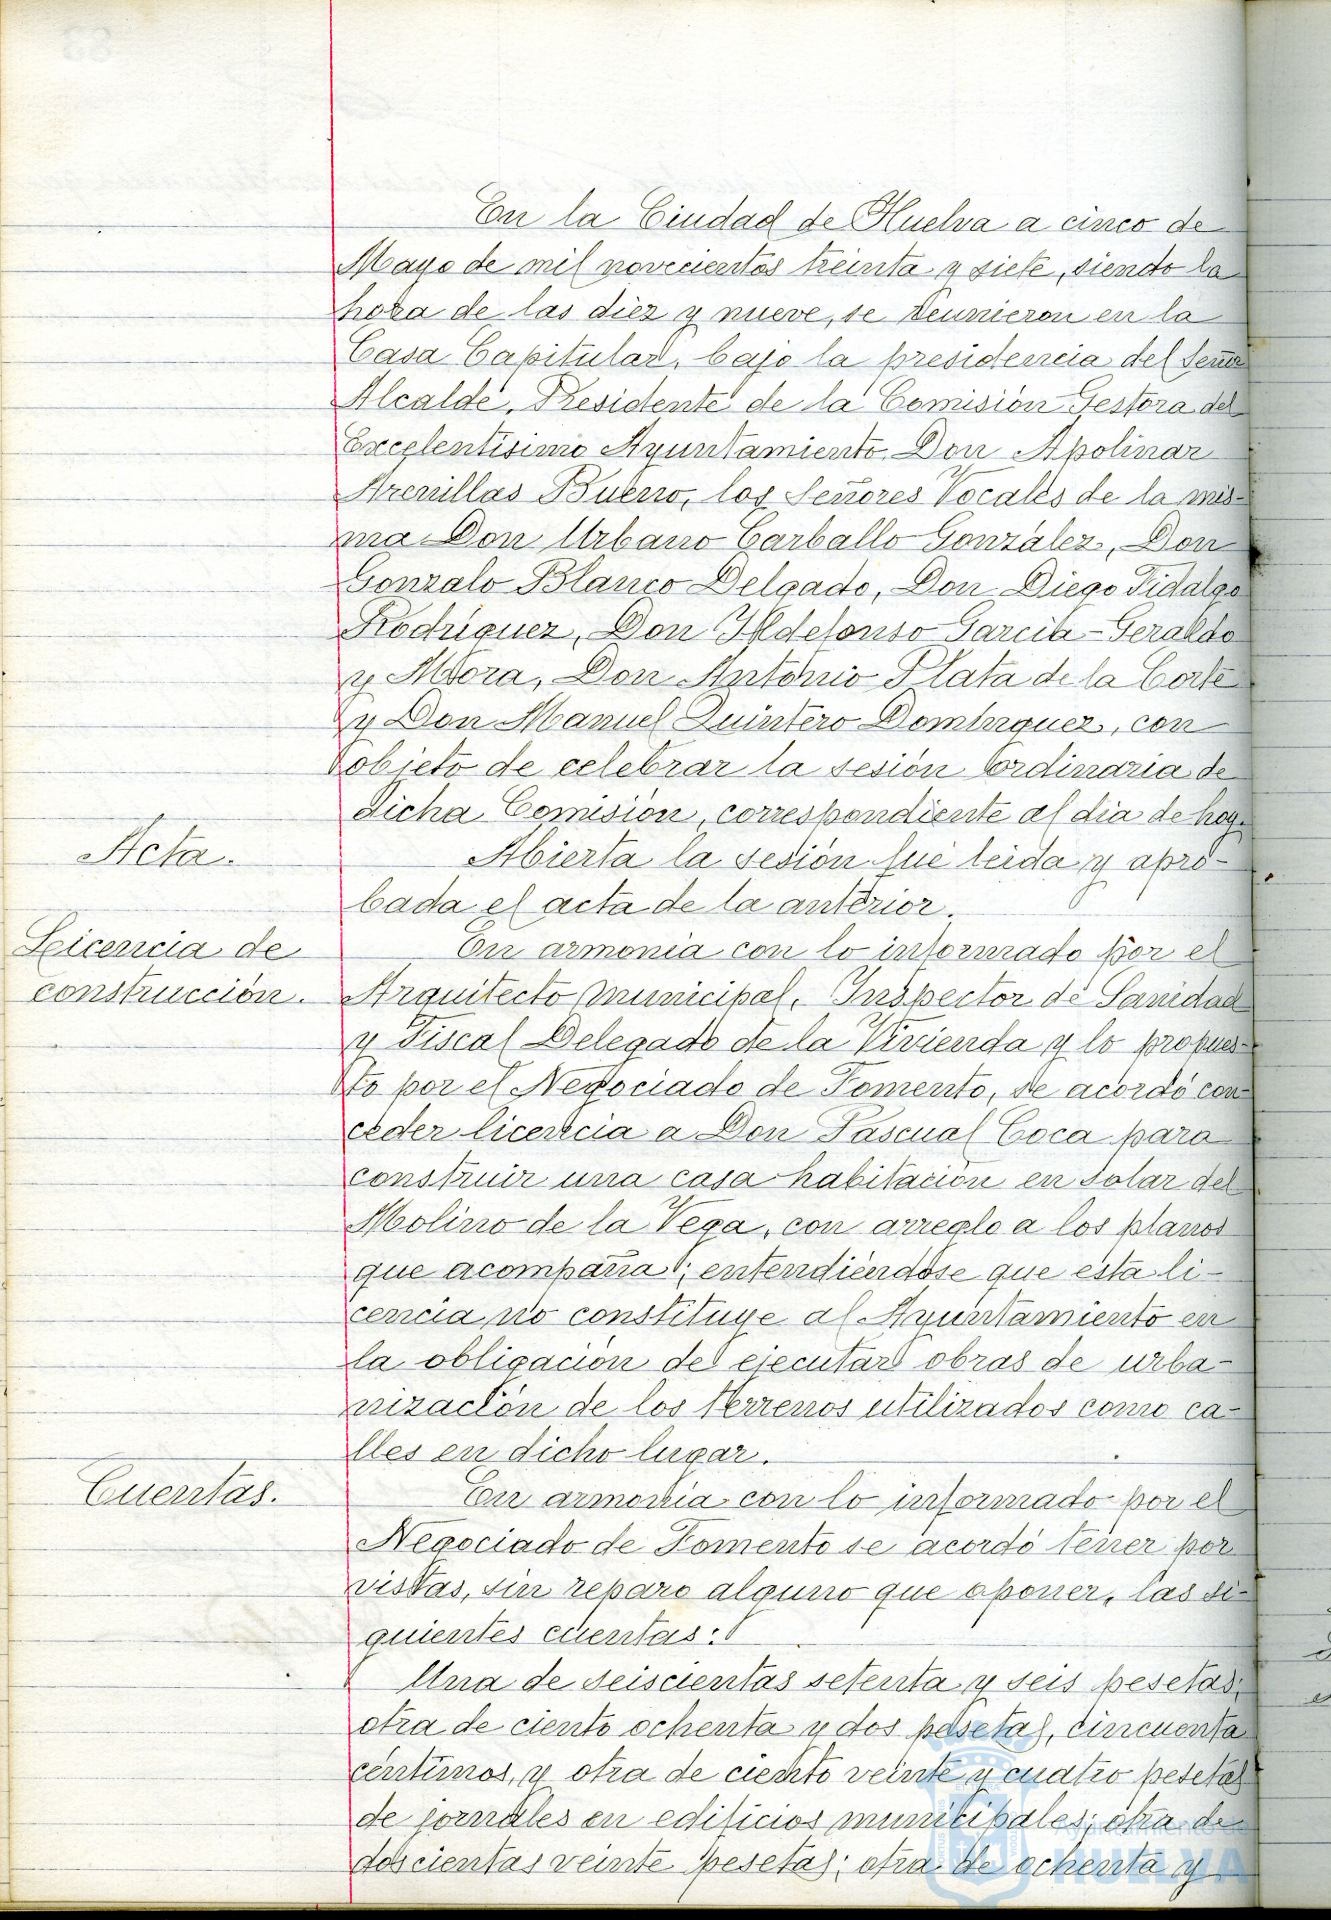 En la Ciudad de Huelva a cinco de
Mayo de mil novecientos treinta y siete, siendo la
hora de las diez y nueve, se reunieron en la
Casa Capitular, bajo la presidencia del Señor
Alcalde, Presidente de la Comisión Gestora del
Excelentísimo Ayuntamiento, Don Apolinar
Arenillas Bueno, los Señores Vocales de la mis-
ma Don Urbano Carballo González, Don
Gonzalo Blanco Delgado, Don Diego Fidalgo
Rodríguez, Don Ildefonso García-Geraldo
y Mora, Don Antonio Plata de la Corte
y Don Manuel Quintero Domínguez, con
objeto de celebrar la sesión ordinaria de
dicha Comisión, correspondiente al día de hoy.
Acta.
Abierta la sesión fué leída y apro-
bada el acta de la anterior.
Licencia de
construcción.
En armonía con lo informado por el
Arquitecto municipal, Inspector de Sanidad
y Fiscal Delegado de la Vivienda y lo propues-
to por el Negociado de Fomento, se acordó con-
ceder licencia a Don Pascual Coca para
construir una casa habitación en solar del
Molino de la Vega, con arreglo a los planos
que acompaña; entendiéndose que esta li-
cencia no constituye al Ayuntamiento en
la obligación de ejecutar obras de urba-
nización de los terrenos utilizados como ca-
lles en dicho lugar.
Cuentas.
En armonía con lo informado por el
Negociado de Fomento se acordó tener por
vistas, sin reparo alguno que oponer, las si-
guientes cuentas:
Una de seiscientas setenta y seis pesetas;
otra de ciento ochenta y dos pesetas, cincuenta
céntimos, y otra de ciento veinte y cuatro pesetas
de jornales en edificios municipales; otra de
doscientas veinte pesetas; otra de ochenta y
Ayuntamiento de
HUELVA